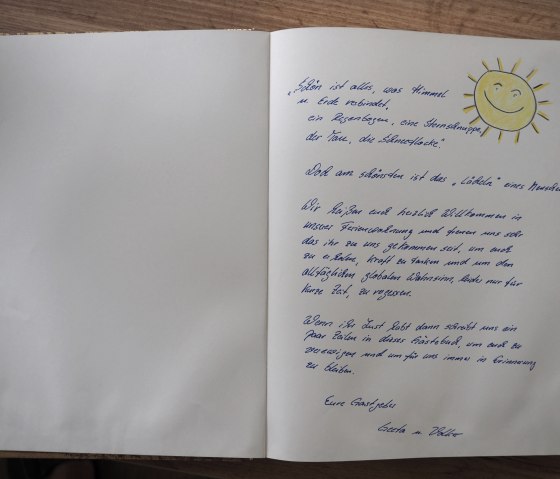 „Schön ist alles, was Himmel
u. Erde verbindet,
ein Regenbogen, eine Sternschnuppe,
der Tau, die Schneeflocke"
Doch am schönsten ist das „Lächeln" eines Menschen
Wir heißen euch herzlich Willkommen in
unserer Ferienwohnung und freuen uns sehr
das ihr zu uns gekommen seit, um euch
zu erholen, kraft zu tanken und um den
alltäglichen globalen Wahnsinn, leider nur für
kurze Zeit, zu vergessen.
Wenn ihr Lust habt dann schreibt uns ein
paar Zeilen in dieses Gästebuch, um euch zu
verewigen und um für uns immer in Erinnerung
zu bleiben.
Eure Gastgeber
u. Volker